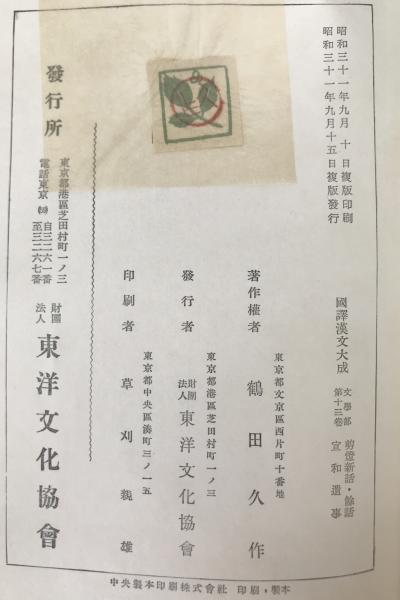 昭和三十一年九月 十 日複版印刷
昭和三十一年九月十五日複版發行
國譯漢文大成 文學部 第十三卷 剪燈新話・餘話 宣和遺事
東京都文京區西片町十番地
著作權者 鶴田久作
東京都港區芝田村町一ノ三
發行者 財團法人 東洋文化協會
東京都中央區湊町三ノ一五
印刷者 草刈親雄
發行所
東京都港區芝田村町一ノ三
電話東京
自三二六一番
至三二六七番
財團法人 東洋文化協會
中央製本印刷株式會社 印刷・製本